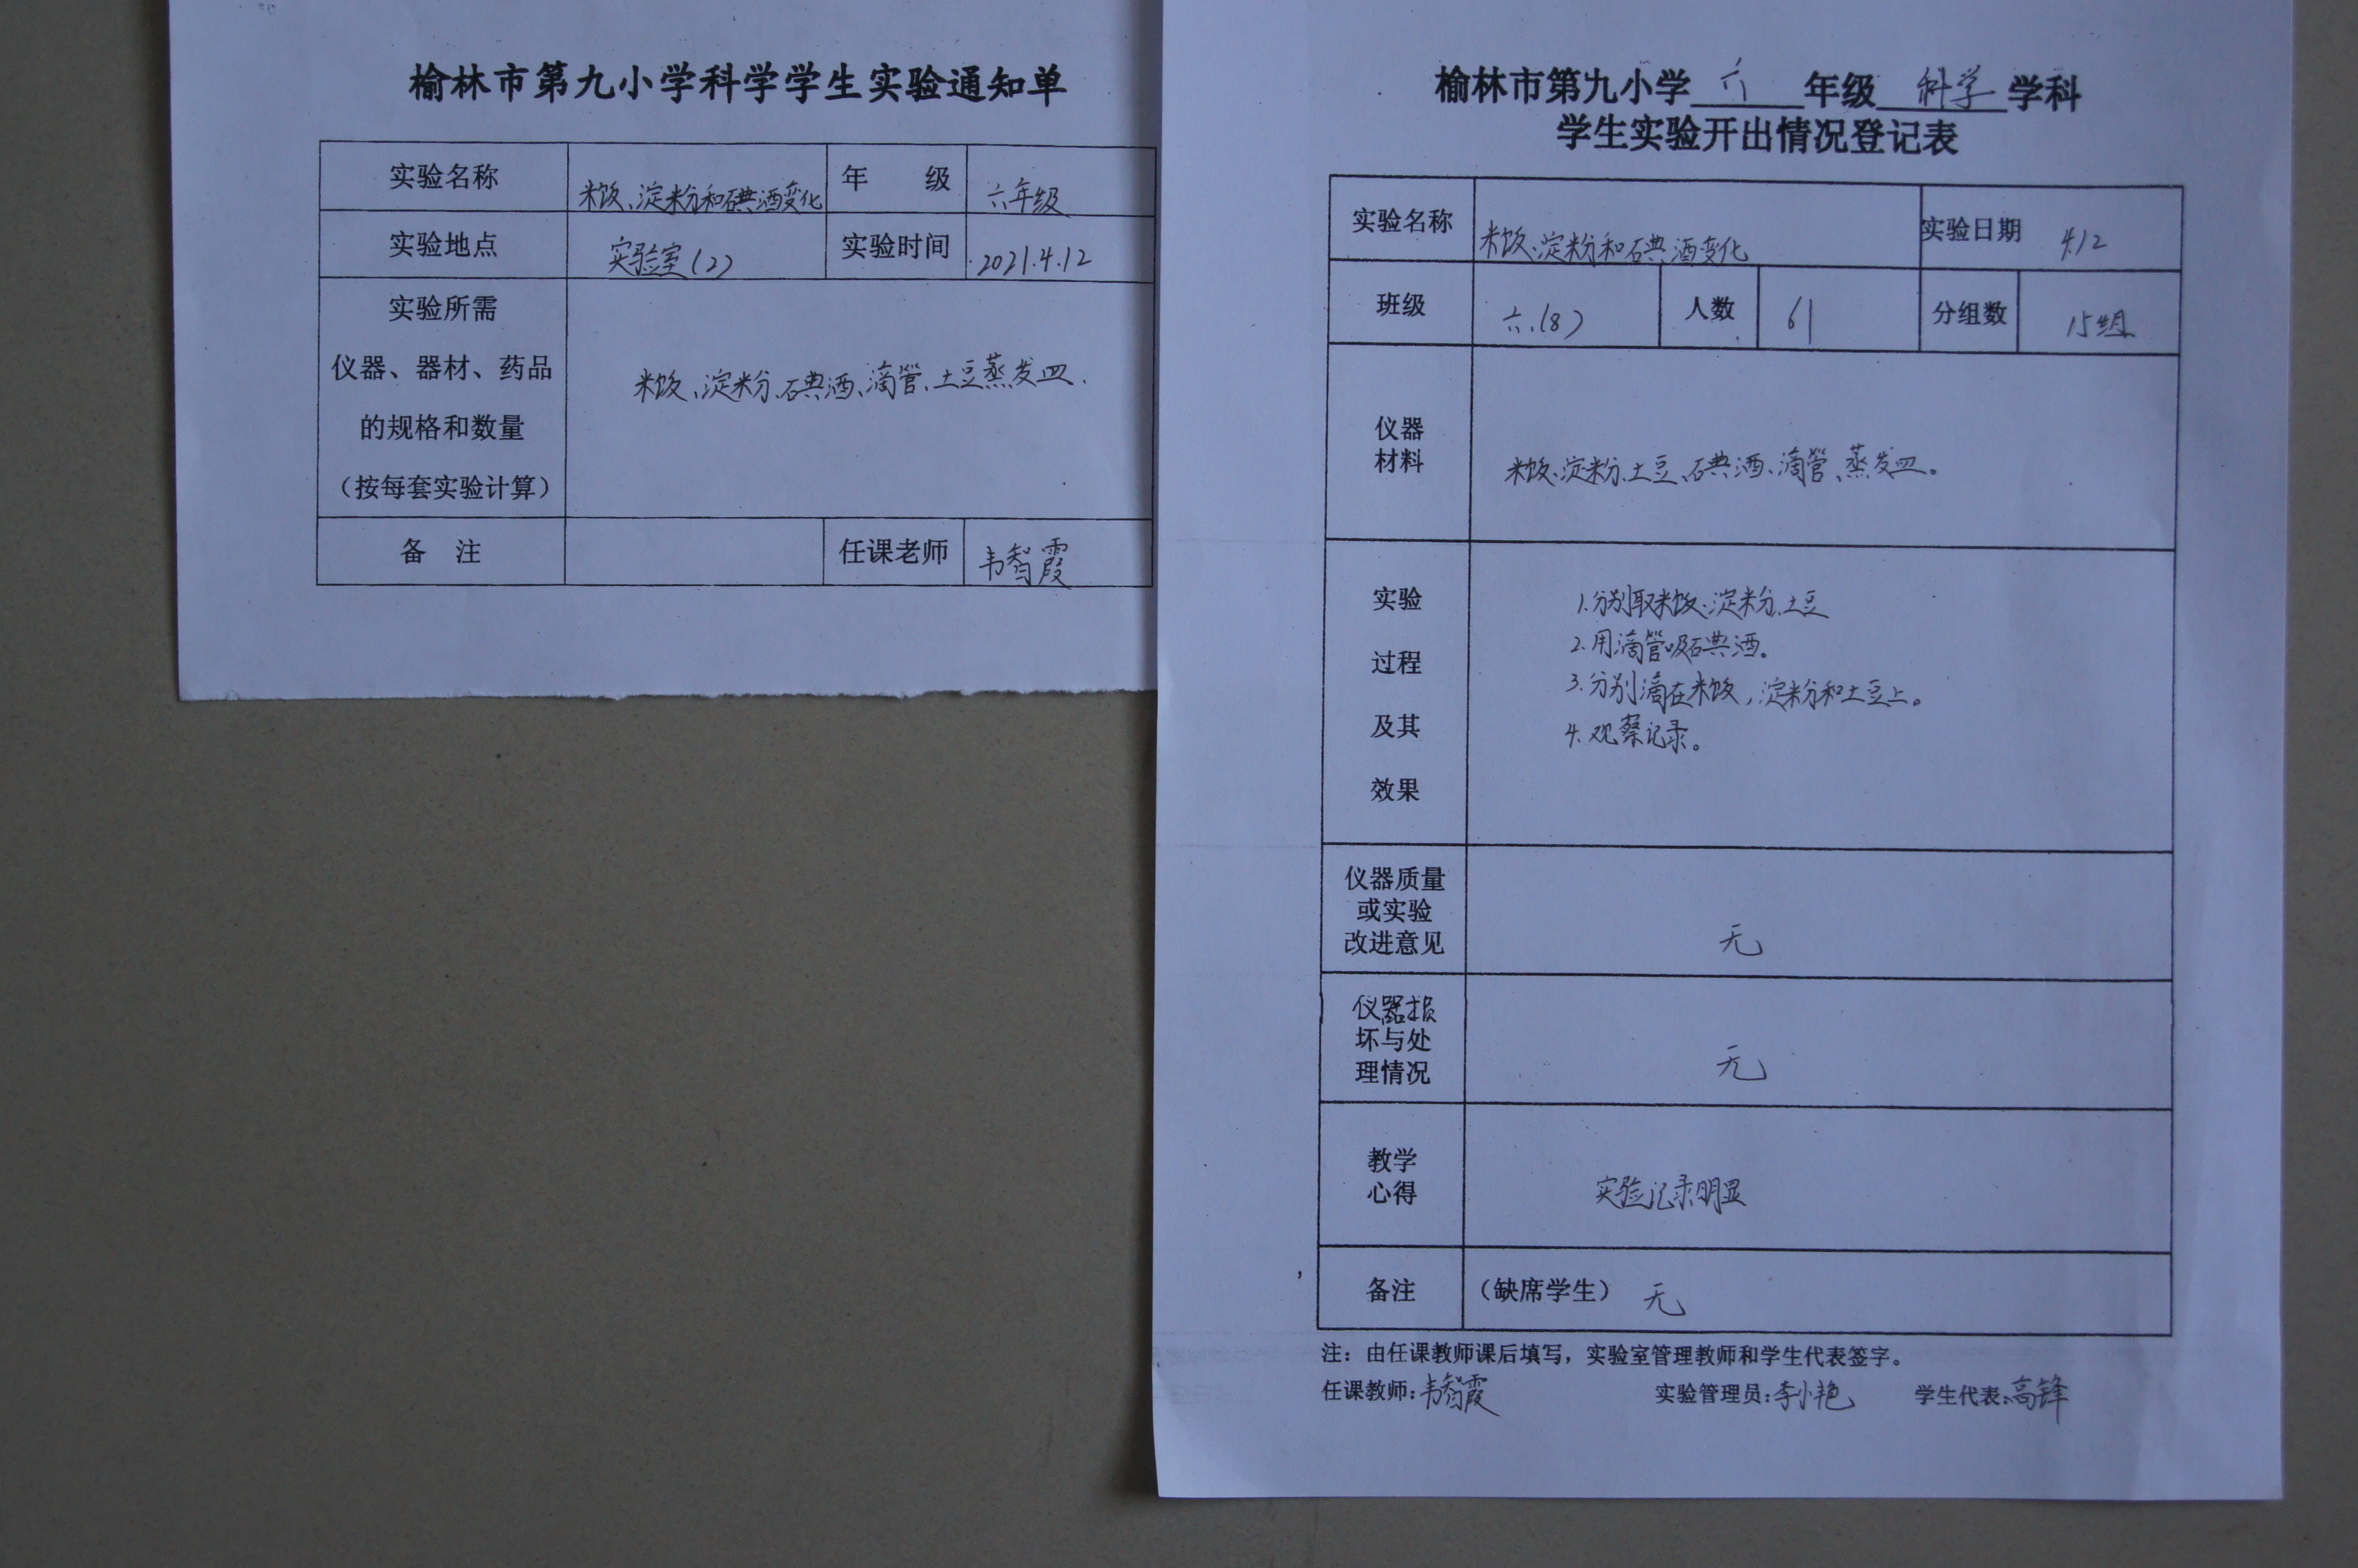 榆林市第九小学科学学生实验通知单
实验名称 米饭、淀粉和碘酒变化 年 级 六年级
实验地点 实验室(2) 实验时间 2021.4.12
实验所需
仪器、器材、药品
的规格和数量
（按每套实验计算）
米饭、淀粉、碘酒、滴管、土豆蒸发皿.
备 注 任课老师 韦智霞
榆林市第九小学 六 年级 科学 学科
学生实验开出情况登记表
实验名称 米饭、淀粉和碘酒变化 实验日期 4.12
班级 六.(8) 人数 61 分组数 15组
仪器
材料
米饭、淀粉、土豆、碘酒、滴管、蒸发皿。
实验
过程
及其
效果
1.分别取米饭、淀粉、土豆
2.用滴管吸碘酒。
3.分别滴在米饭，淀粉和土豆上。
4.观察记录。
仪器质量
或实验
改进意见
无
仪器损
坏与处
理情况
无
教学
心得
实验记录明显
备注 （缺席学生） 无
注：由任课教师课后填写，实验室管理教师和学生代表签字。
任课教师：韦智霞 实验管理员：李小艳 学生代表：高锋